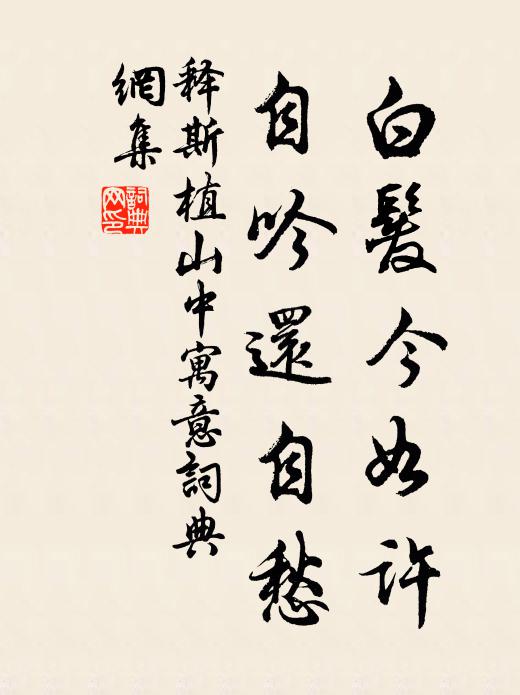 白髮今如許
自吟還自愁
释斯植山中寓意詞典
網集
詞典網印